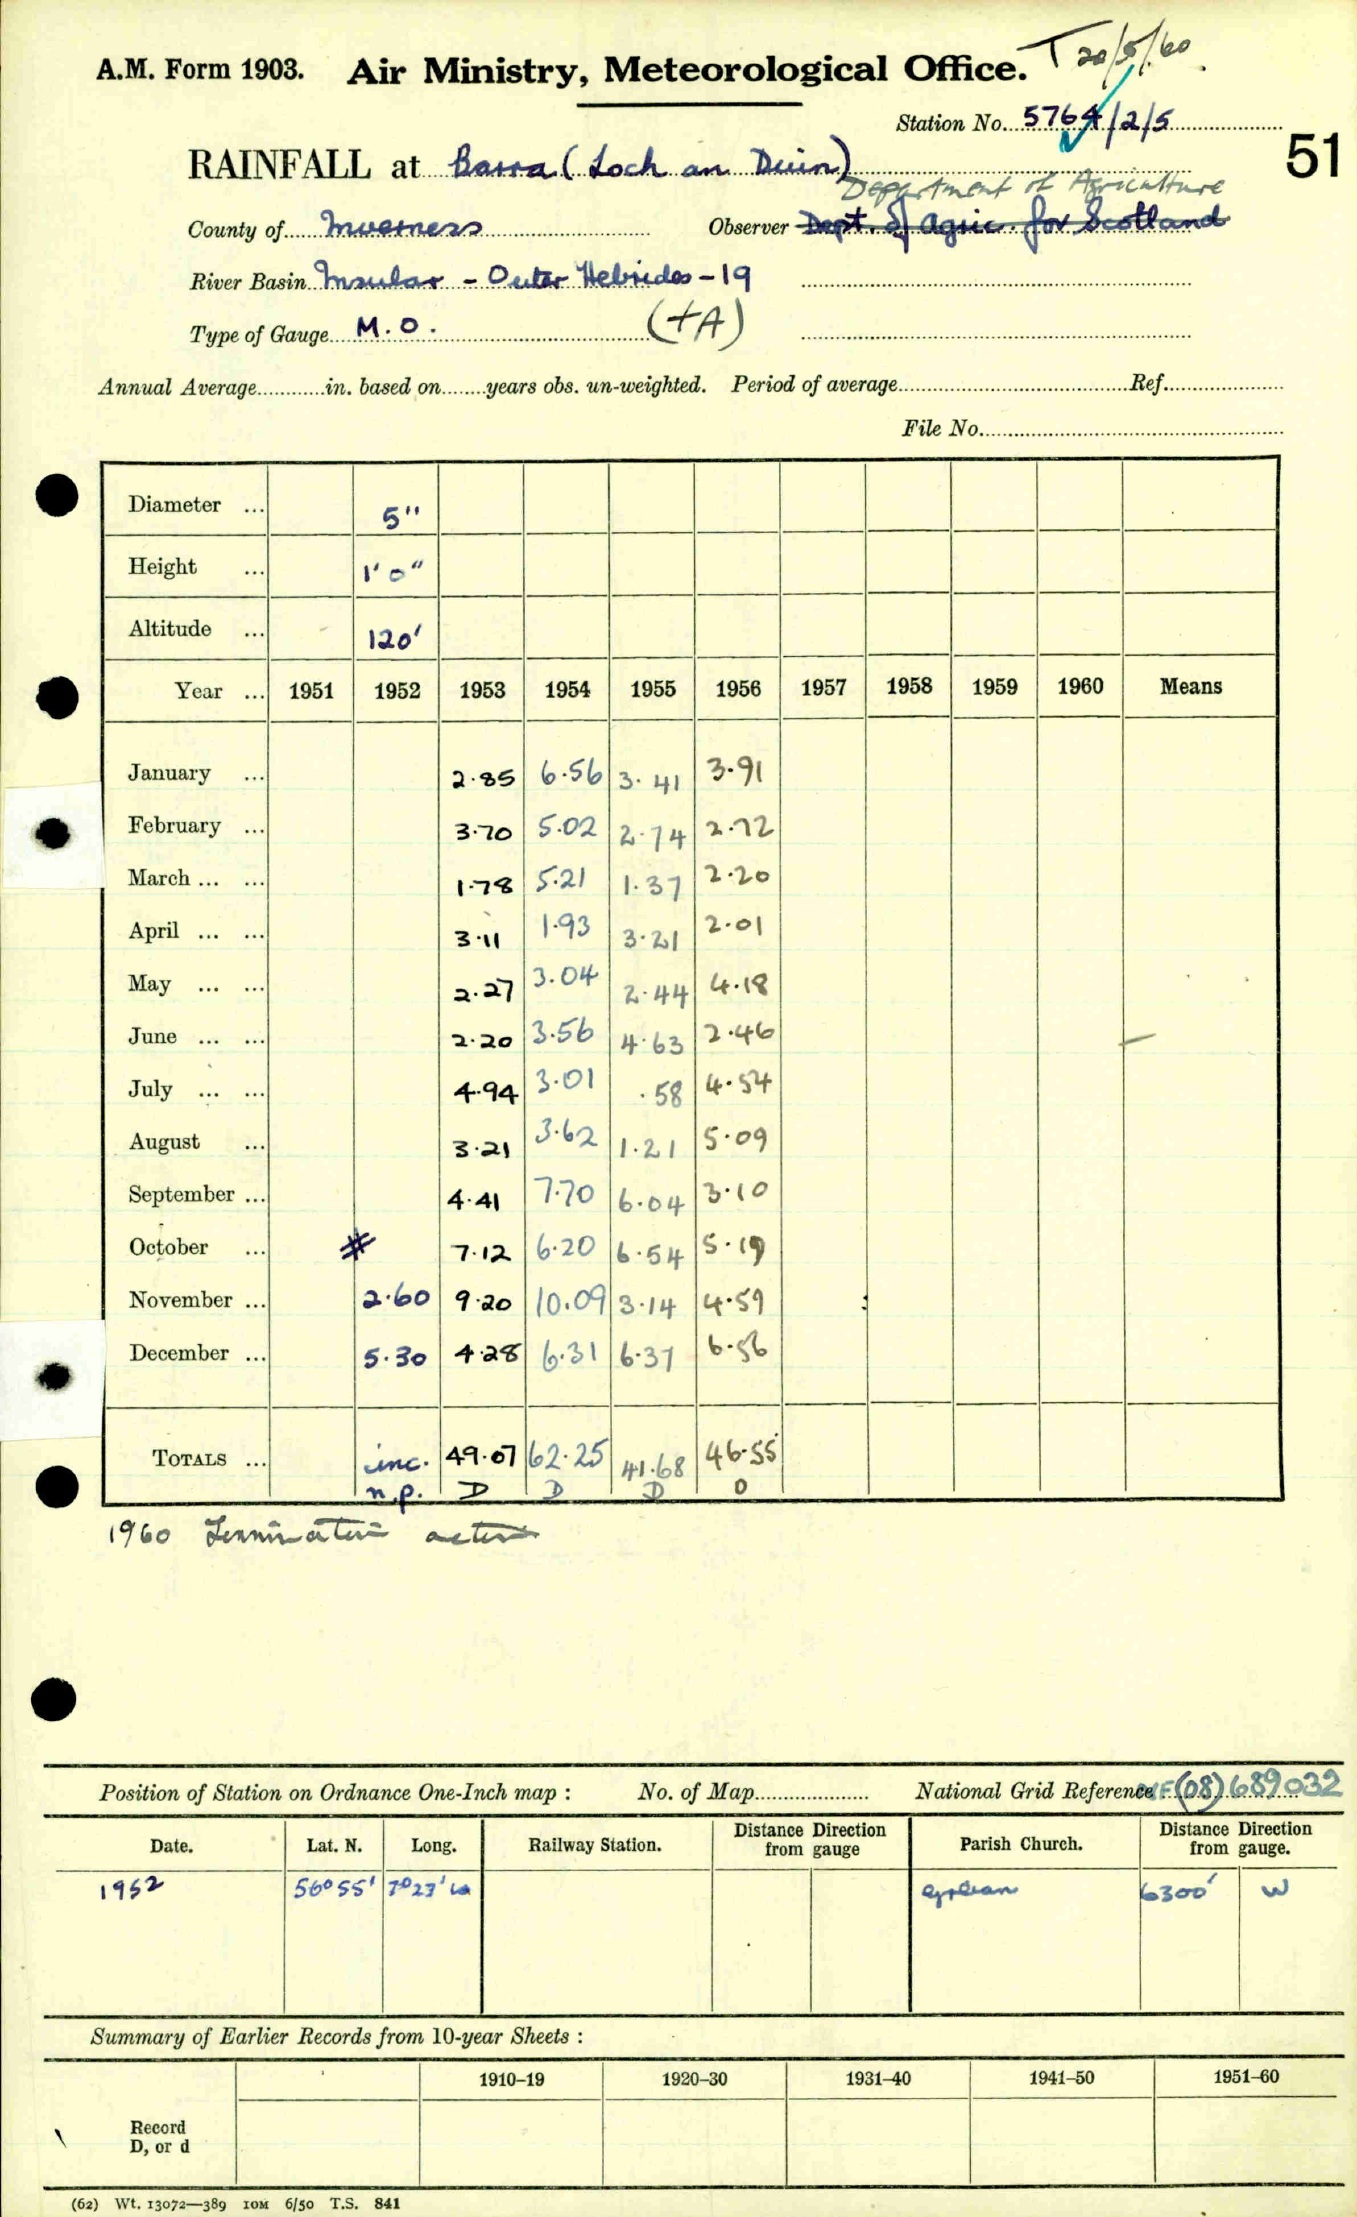 T 20/5/60
A.M. Form 1903. Air Ministry, Meteorological Office.
Station No. 5764/2/5
51
RAINFALL at Barra (Loch an Duin)
Department of Agriculture
County of Inverness Observer Dept. of Agric. for Scotland
River Basin Insular - Outer Hebrides - 19
Type of Gauge M.O. (+A)
Annual Average in. based on years obs. un-weighted. Period of average Ref.
File No.
Diameter ... 5"
Height ... 1' 0"
Altitude ... 120'
Year ... 1951 1952 1953 1954 1955 1956 1957 1958 1959 1960 Means
January ... 2.85 6.56 3.41 3.91
February ... 3.70 5.02 2.74 2.72
March ... ... 1.78 5.21 1.37 2.20
April ... ... 3.11 1.93 3.21 2.01
May ... ... 2.27 3.04 2.44 4.18
June ... ... 2.20 3.56 4.63 2.46
July ... ... 4.94 3.01 .58 4.54
August ... 3.21 3.62 1.21 5.09
September ... 4.41 7.70 6.04 3.10
October ... # 7.12 6.20 6.54 5.19
November ... 2.60 9.20 10.09 3.14 4.59
December ... 5.30 4.28 6.31 6.37 6.56
TOTALS ... inc. 49.07 62.25 41.68 46.55
n.p. D D D D
1960 Termination
Position of Station on Ordnance One-Inch map : No. of Map National Grid Reference NF (08) 689032
Date. Lat. N. Long. Railway Station. Distance Direction from gauge Parish Church. Distance Direction from gauge.
1952 56° 55' 7° 27' W 6300' W
Summary of Earlier Records from 10-year Sheets :
1910–19 1920–30 1931–40 1941–50 1951–60
Record
D, or d
(62) Wt. 13072—389 10M 6/50 T.S. 841